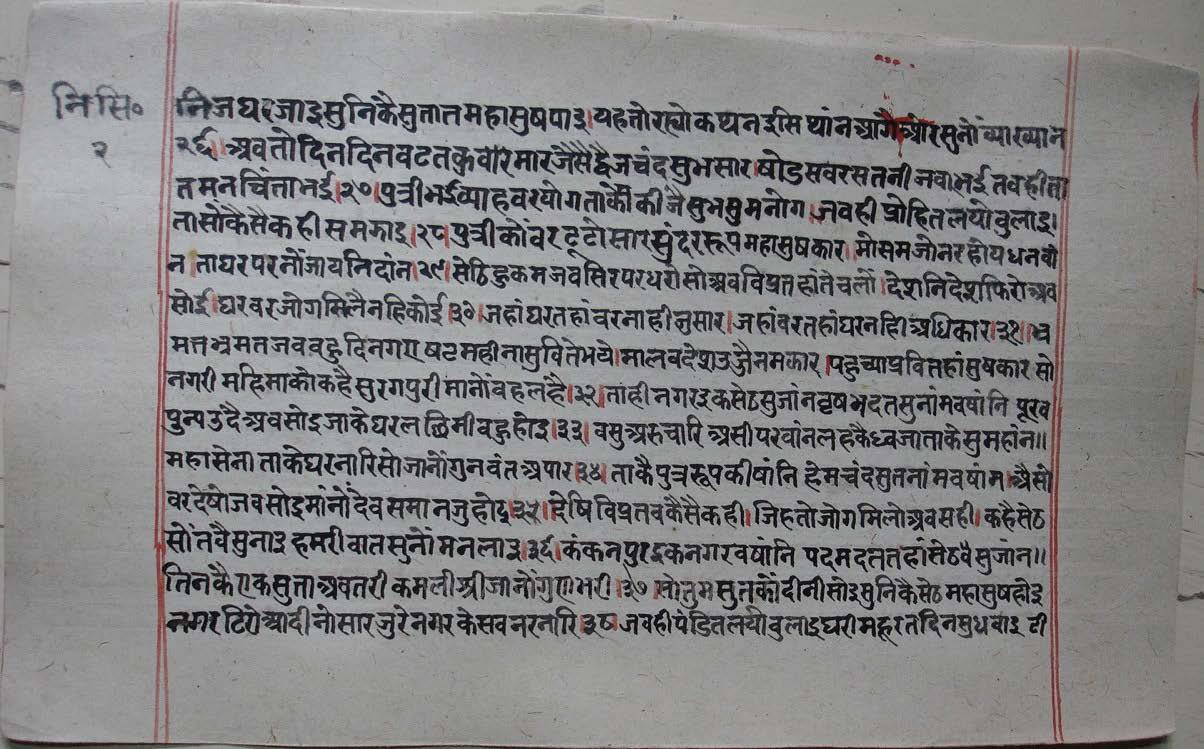 नि सि॰ निज घर जाइ सुनिकै सुतातमहासुषपाइ।यह तो रह्यो कथन इसि थांन आगै और सुनो व्याख्यान
२ २६।अवतो दिन दिन वटत कुवारि मार जैसै द्वैज चंद सुभसार।षोडस वरस तनी जव भई तवही ता
त मन चिंता भई।२७।पुत्री भई व्याह वर योग ताकौ कीजै सुभ सुमनोग।जवही प्रोहित लयो वुलाइ।
तासों कैसै कही समझाइ।२८।पुत्री कों वर टूटो सार सुंदर रूप महासुषकार।मो सम जो नर होय धनवां
न।ता घर परनों जाय निदांन।२९।सेठि हुकम जव सिर पर धरो सो अव विप्र तहां तै चलों।देश निदेश फिरो अव
सोई।घर वर जोग मिलै नहि कोई।३०।जहां घर तहां वर नाही नुसार।जहां वर तहां घर न हि अधिकार।३१।भ्र
मत भ्रमत जव वहु दिन गए षट महीना सु वितै भये।मालव देश उजैन मझार।पहुच्या प्रवित तहां सुषकार सो
नगरी महिमा को कहै सुरगपुरी मानों वह लहै।३२।ताही नगर इक सेठ सुजांन वृषभदत सु नांम वषांनि पूरव
पुन्य उदै अव सोइ जाके घर लछिमी वहु होइ।३३।वसु अरु चारि असी परवांन लहकै ध्वजा ताके सु महांन॥
महासेना ताके घर नारि सो जानों गुनवंत अपार।३४।ताकै पुत्र रूप की षांनि हेमचंद सुत नांम वषांन।अैसो
वर देषो जव सोइ मांनों देव समान जु होइ।३५।देषि विप्र तव कैसै कही।जिह तो जोग मिलो अव सही।कहै सेठ
सों तवै सुनाइ हमरी वात सुनों मन लाइ।३६।कंकनपुर इक नगर वषांनि पदमदत तहां सेठ वै सुजांन॥
तिनकै एक सुता अवतरी कमलीश्री जानों गुण भरी।३७।सो तुम सुत कों दीनी सोइ सुनिकै सेठ महासुष होइ
नगर टिरोआ दीनो सार जुरे नगर के सव नर नारि।३८।जवही पंडित लयौ वुलाइ घरी महूरत दिन सुधवाइ टी